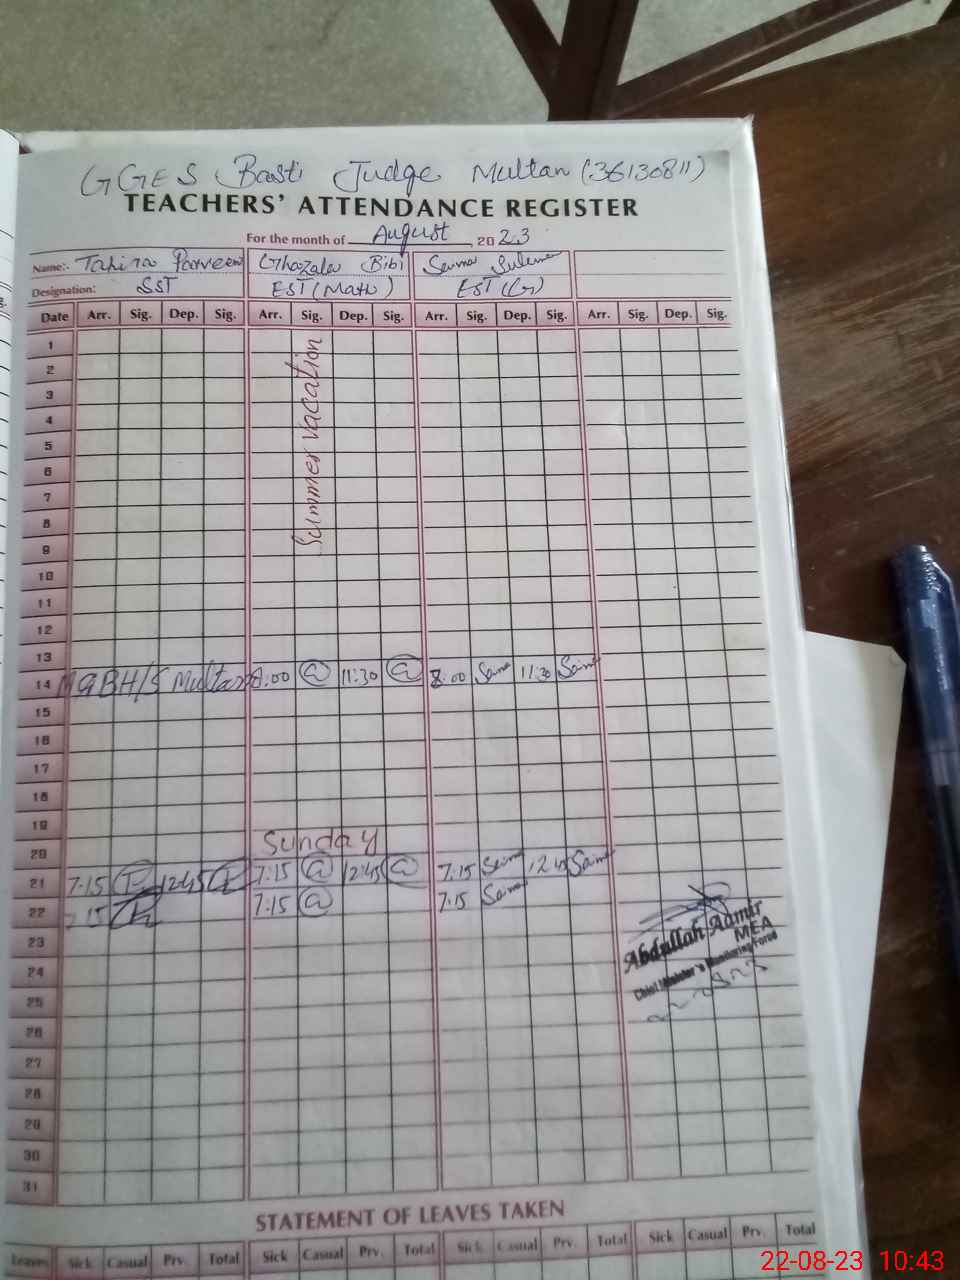 GGES Basti Judge Multan (36130811)
TEACHERS' ATTENDANCE REGISTER
For the month of August, 2023
Name:- Tahira Parveen Ghazala Bibi
Designation: SST EST (Math) EST
Date Arr. Sig. Dep. Sig. Arr. Sig. Dep. Sig. Arr. Sig. Dep. Sig. Arr. Sig. Dep. Sig.
Summer vacation
1
2
3
4
5
6
7
8
9
10
11
12
13
14 Multan 8:00 @ 11:30 @ 8:00 11:30
15
16
17
18
19
20 Sunday
21 7:15 12:45 7:15 @ 12:45 @ 7:15 12:45
22 7:15 7:15 @ 7:15
23
24
25
26
27
28
29
30
31
Abdullah Aamir
MEA
Chief Minister's Monitoring Force
STATEMENT OF LEAVES TAKEN
Leaves Sick Casual Prv. Total Sick Casual Prv. Total Sick Casual Prv. Total Sick Casual Prv. Total
22-08-23 10:43